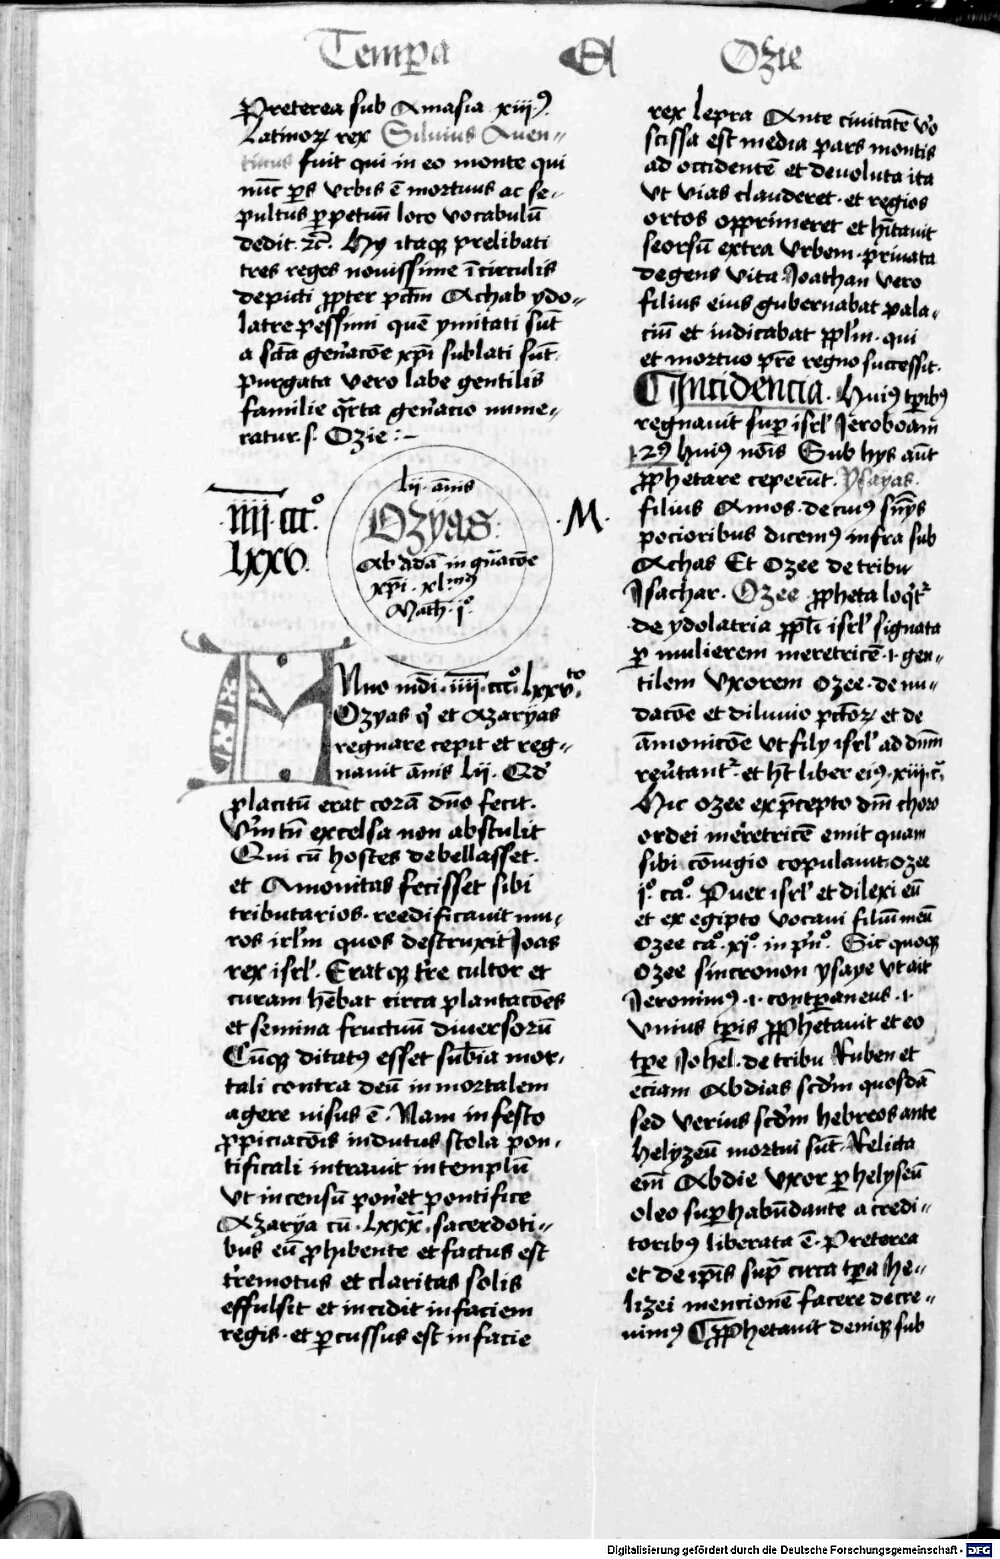 Temp̄a Et Ozie
Preterea sub Amasia xiijꝰ.
Latinoꝝ rex Siluius Auen-
tinus fuit qui in eo monte qui
nūc p̄s vrbis ē mortuus ac se-
pultus ꝑpetuū loco vocabulū
dedit. ⁊c̄. Hy itaqꝫ prelibati
tres reges nouissime ī circulis
depicti ꝓpter pct̄m Achab ydo-
latre pessimi quē ymitati sūt
a sct̄a gen̄acōe xp̄i sublati sūt.
purgata vero labe gentilis
familie q̄rta gen̄acio nume-
ratur. s. Ozie :-
·iiij·ccc°·
lxxv.
lij. ānis
Ozyas.
Ab adā in gn̄acōe
xp̄i. xl.
Math. i°.
·M·
Anno mūdi. iiij. ccc°. lxxvto.
Ozyas q̇ et Azaryas
regnare cepit et reg-
nauit ānis lij. Qd̕
placitū erat corā dn̄o fecit.
Vm̄tn̄ excelsa non abstulit
Qui cū hostes debellasset.
et Amonitas fecisset sibi
tributarios. reedificauit mu-
ros irlm̄ quos destruxit Joas
rex isrl̕. Erat qꝫ tr̄e cultor et
curam hēbat circa plantacōes
et semina fructuū diuersorū
Cūqꝫ ditatꝰ esset sub̄ia mor-
tali contra deū inmortalem
agere nisus ē. Nam in festo
ꝓpiciacōis indutus stola pon-
tificali intrauit in templū
vt incensū pon̄et pontifice
Azarya cū. lxxx. sacerdoti-
bus eū ꝓhibente et factus est
t̄remotus et claritas solis
effulsit et incidit in faciem
regis. et ꝑcussus est in facie
rex lepra Ante ciuitatē v̊o
scissa est media pars montis
ad occidentē et deuoluta ita
vt vias clauderet. et regios
ortos opprimeret et hītauit
seorsū extra vrbem. priuata
degens vita Joathan vero
filius eius gubernabat pala-
ciū et iudicabat ppl̄m. qui
et mortuo pr̄e regno successit.
¶Incidencia. Huiꝰ tp̄ibꝰ
regnauit suꝑ isrl̕ Jeroboam
.2ꝰ huiꝰ nōis Sub hys aūt
ꝓphetare ceperūt. Ysayas.
filius Amos. de cuiꝰ
pocioribus dicemꝰ infra sub
Achas Et Ozee de tribu
Isachar. Ozee ꝓpheta loq̇tᷣ
de ydolatria ppl̄i isrl̕ signata
ꝑ mulierem meretricē .i. gen-
tilem vxorem Ozee. de nu-
dacōe et diluuio pct̄oꝝ et de
āmonicōe vt filij isrl̕ ad dn̄m
reūtantᷣ. et hꝫ liber eiꝰ. xiiij. c̄.
Hic ozee ex p̄cepto dn̄i choro
ordei meretricē emit quam
sibi cōiugio copulauit. ozee
i°. ca°. Puer isrl̕ et dilexi eū
et ex egipto vocaui filiū meū
Ozee ca°. xi°. in pn̄°. Sic quoqꝫ
Ozee sincronon ysaye vt ait
Jeronimꝰ .i. contꝑaneus .i.
vnius tp̄is ꝓphetauit et eo
tp̄e Johel. de tribu Ruben et
eciam Abdias scd̄m quosdā
sed verius scd̄m hebreos ante
helyzeū mortui sūt. Relicta
em̄ Abdie vxor ꝑ helyseū
oleo suꝑhabūdante a credi-
toribꝰ liberata ē. Preterea
et de ip̄is sup̄ circa tp̄a he-
lizei mencionē facere decre-
uimꝰ ¶Prophetauit deniqꝫ sub
Digitalisierung gefördert durch die Deutsche Forschungsgemeinschaft - DFG